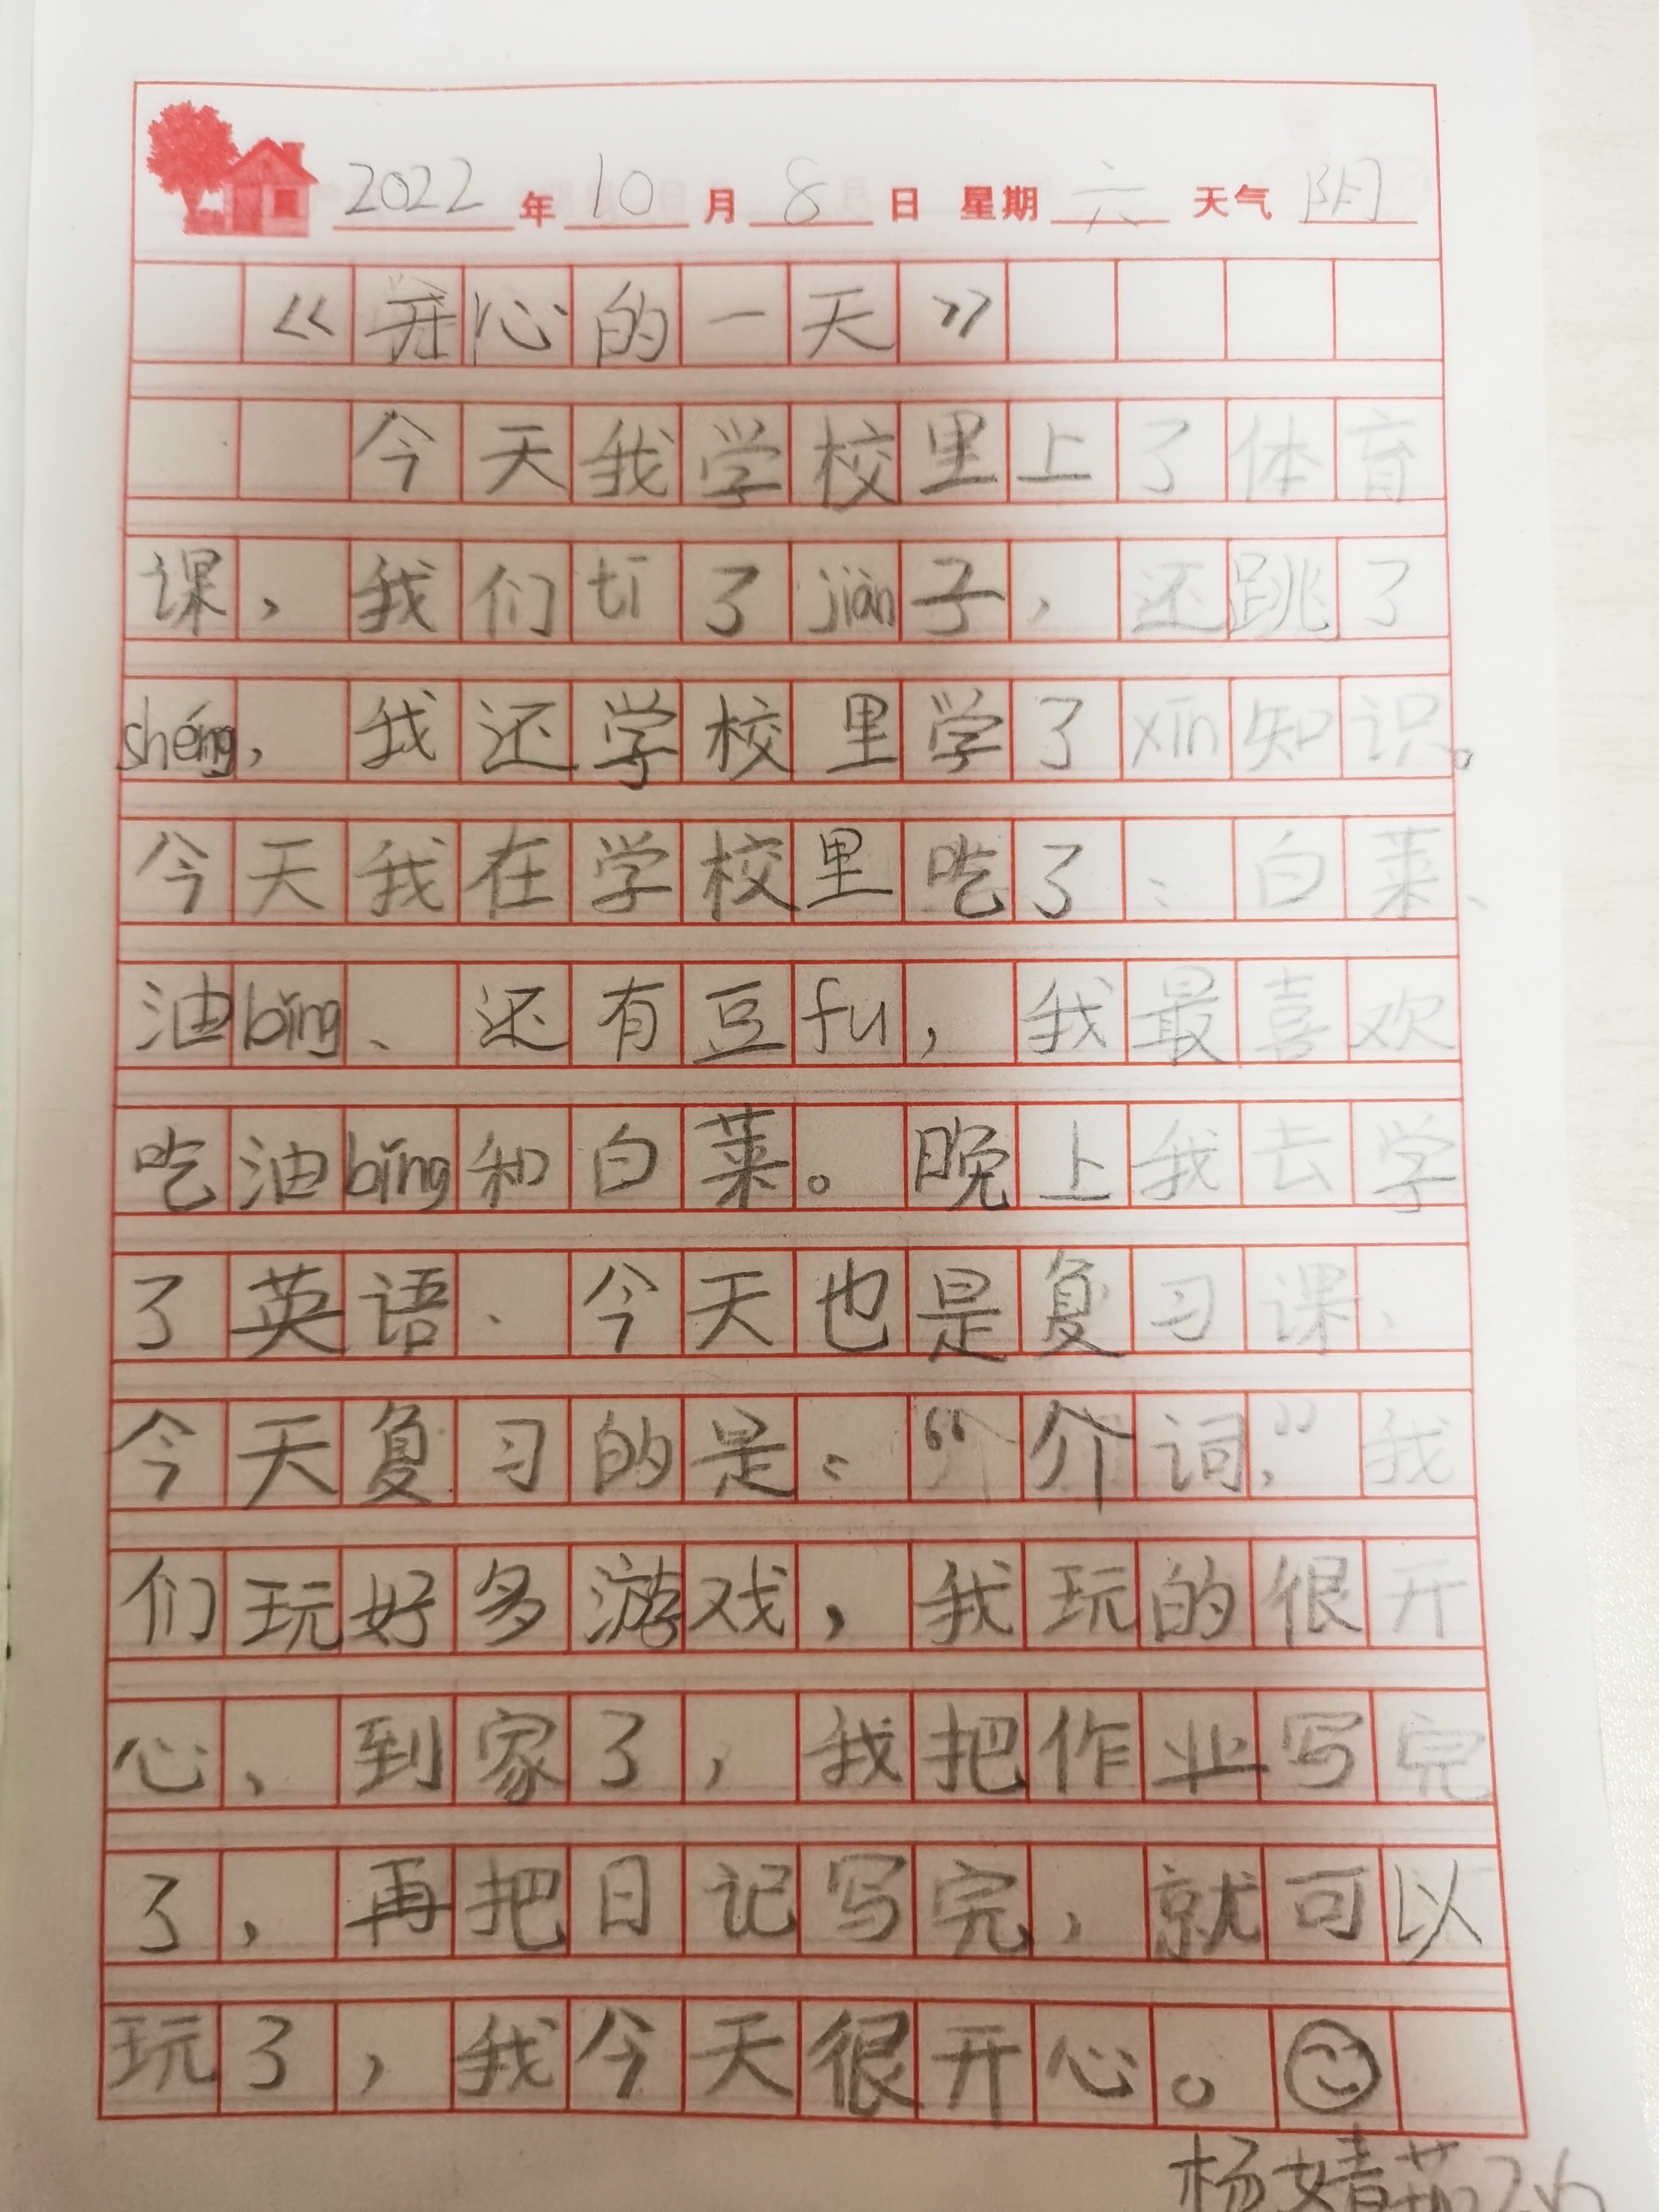 2022年10月8日 星期六 天气阴
《开心的一天》
今天我学校里上了体育
课，我们tī了jiàn子，还跳了
shéng，我还学校里学了xīn知识。
今天我在学校里吃了：白菜、
油bǐng、还有豆fu，我最喜欢
吃油bǐng和白菜。晚上我去学
了英语、今天也是复习课、
今天复习的是：“介词，”我
们玩好多游戏，我玩的很开
心、到家了，我把作业写完
了，再把日记写完，就可以
玩了，我今天很开心。
杨婧